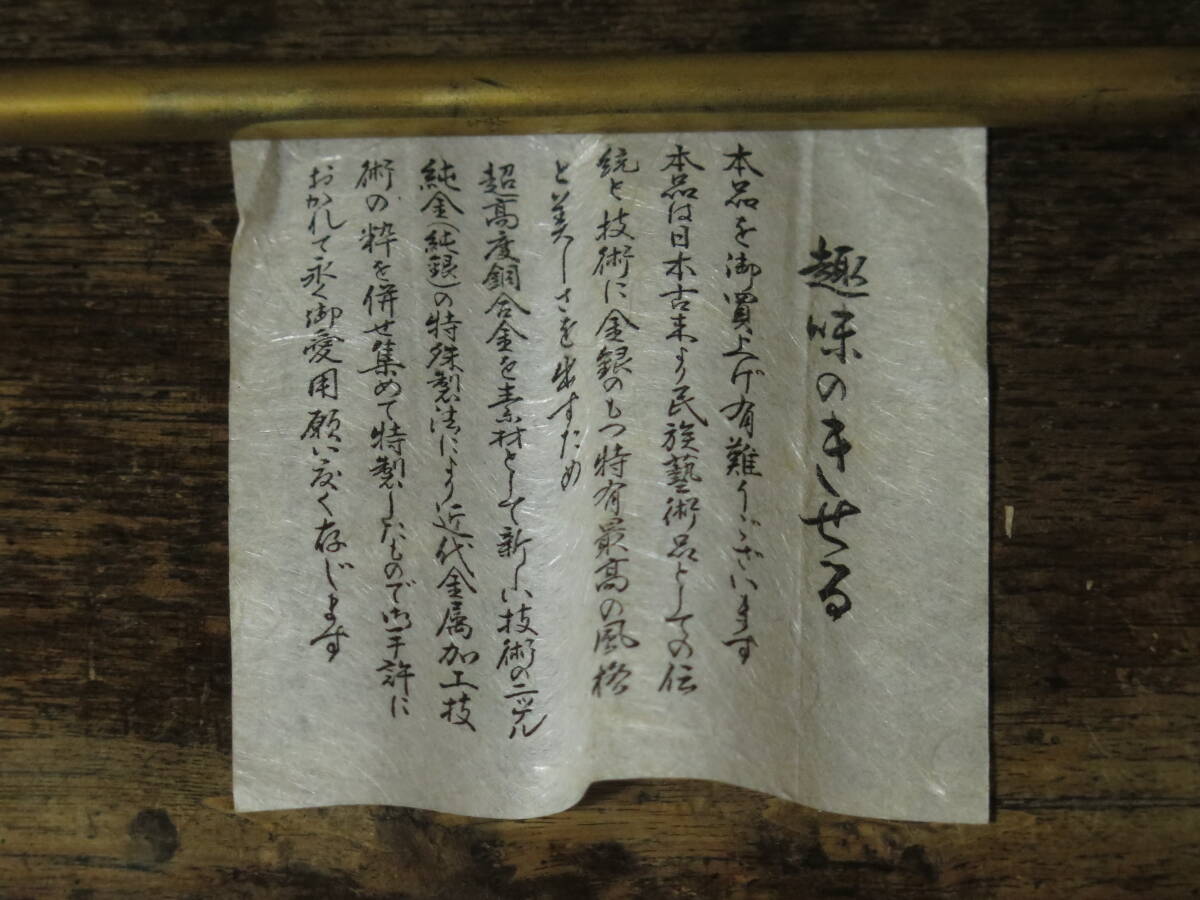 趣味のきせる
本品を御買上げ有難うございます
本品は日本古来より民族藝術品としての伝
統と技術に金銀のもつ特有最高の風格
と美しさを出すため
超高度銅合金を素材として新しい技術のニッケル
純金(純銀)の特殊製法により近代金属加工技
術の粋を併せ集めて特製したもので御手許に
おかれて永く御愛用願い度く存じます